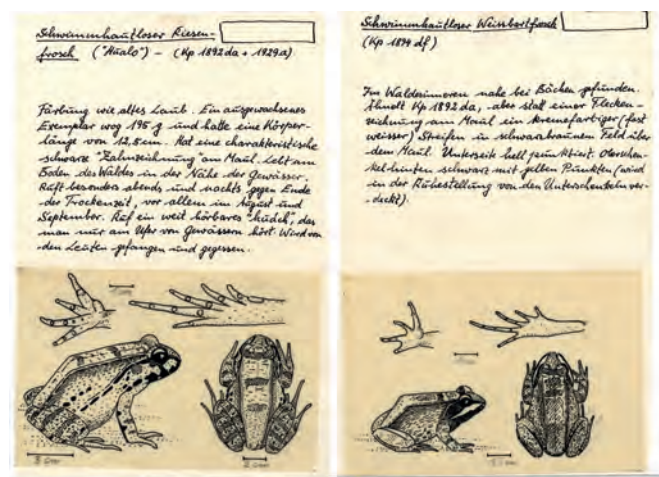 Schwimmhautloser Riesen-
frosch ("Hualo") – (Kp 1892da + 1929a)
Färbung wie altes Laub. Ein ausgewachsenes
Exemplar wog 195 g und hatte eine Körper-
länge von 12,5 cm. Hat eine charakteristische
schwarze "Zahnzeichnung" am Maul. Lebt am
Boden des Waldes in der Nähe der Gewässer.
Ruft besonders abends und nachts gegen Ende
der Trockenzeit, vor allem im August und
September. Ruf ein weit hörbares das
man nur am Ufer von Gewässern hört. Wird von
den Leuten gefangen und gegessen.
Schwimmhautloser Weissbartfrosch
(Kp 1894 df)
Im Waldesinneren nahe bei Bächen gefunden.
Ähnelt Kp 1892 da, aber statt einer Flecken-
zeichnung am Maul ein kremefarbiger (fast
weisser) Streifen in schwarzbraunem Feld über
dem Maul. Unterseite hell punktiert. Oberschen-
kel hinten schwarz mit gelben Punkten (wird
in der Ruhestellung von den Unterschenkeln ver-
deckt).